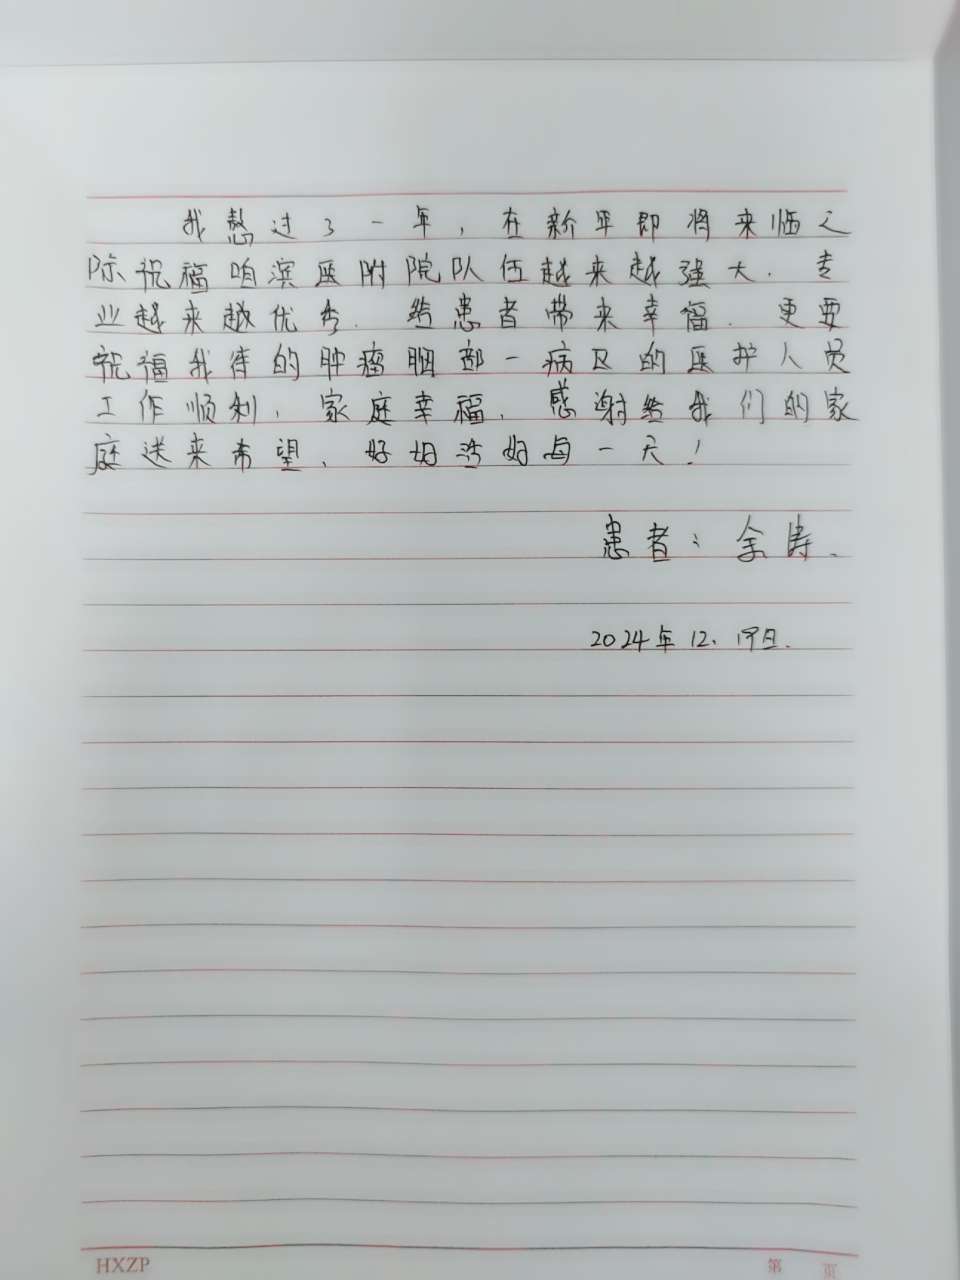 我熬过了一年，在新年即将来临之
际祝福咱滨医附院队伍越来越强大．专
业越来越优秀．给患者带来幸福．更要
祝福我待的肿瘤胭部一病区的医护人员
工作顺利，家庭幸福．感谢给我们的家
庭送来希望、好好活好每一天！
患者：余涛．
2024年12、19日．
HXZP
第 页